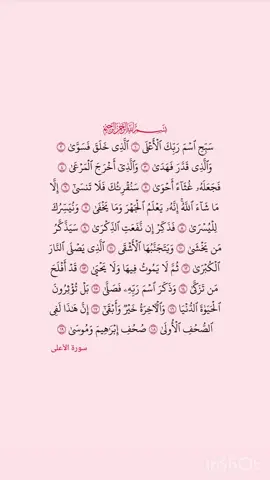 بِسْمِ اللَّهِ الرَّحْمَٰنِ الرَّحِيمِ
سَبِّحِ ٱسْمَ رَبِّكَ ٱلْأَعْلَى ۝١ ٱلَّذِى خَلَقَ فَسَوَّىٰ ۝٢
وَٱلَّذِى قَدَّرَ فَهَدَىٰ ۝٣ وَٱلَّذِىٓ أَخْرَجَ ٱلْمَرْعَىٰ ۝٤
فَجَعَلَهُۥ غُثَآءً أَحْوَىٰ ۝٥ سَنُقْرِئُكَ فَلَا تَنسَىٰٓ ۝٦ إِلَّا
مَا شَآءَ ٱللَّهُ إِنَّهُۥ يَعْلَمُ ٱلْجَهْرَ وَمَا يَخْفَىٰ ۝٧ وَنُيَسِّرُكَ
لِلْيُسْرَىٰ ۝٨ فَذَكِّرْ إِن نَّفَعَتِ ٱلذِّكْرَىٰ ۝٩ سَيَذَّكَّرُ
مَن يَخْشَىٰ ۝١٠ وَيَتَجَنَّبُهَا ٱلْأَشْقَى ۝١١ ٱلَّذِى يَصْلَى ٱلنَّارَ
ٱلْكُبْرَىٰ ۝١٢ ثُمَّ لَا يَمُوتُ فِيهَا وَلَا يَحْيَىٰ ۝١٣ قَدْ أَفْلَحَ
مَن تَزَكَّىٰ ۝١٤ وَذَكَرَ ٱسْمَ رَبِّهِۦ فَصَلَّىٰ ۝١٥ بَلْ تُؤْثِرُونَ
ٱلْحَيَوٰةَ ٱلدُّنْيَا ۝١٦ وَٱلْءَاخِرَةُ خَيْرٌ وَأَبْقَىٰٓ ۝١٧ إِنَّ هَٰذَا لَفِى
ٱلصُّحُفِ ٱلْأُولَىٰ ۝١٨ صُحُفِ إِبْرَٰهِيمَ وَمُوسَىٰ ۝١٩
سورة الأعلى